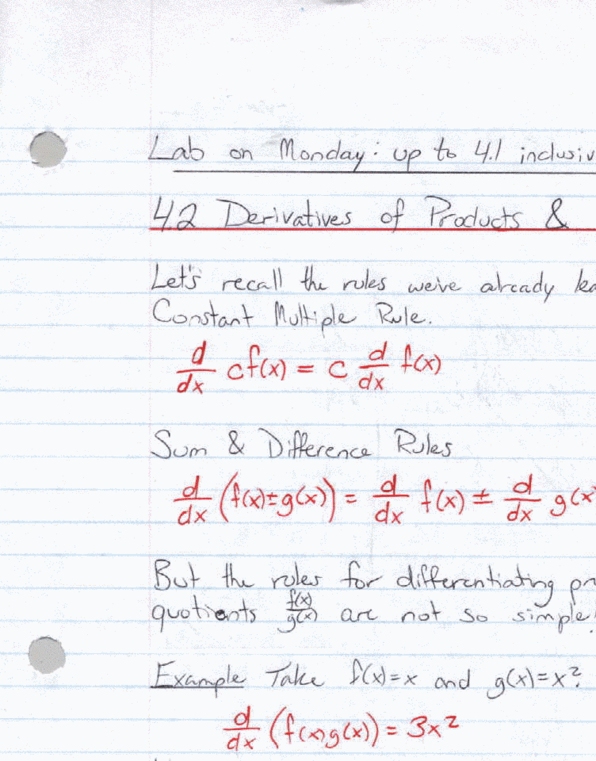 Lab on Monday: up to 4.1 inclusiv
4.2 Derivatives of Products &
Let's recall the rules we've already lea
Constant Multiple Rule.
d/dx cf(x) = c d/dx f(x)
Sum & Difference Rules
d/dx (f(x)±g(x)) = d/dx f(x) ± d/dx g(x)
But the rules for differentiating pr
quotients f(x)/g(x) are not so simple!
Example Take f(x)=x and g(x)=x².
d/dx (f(x)g(x)) = 3x²